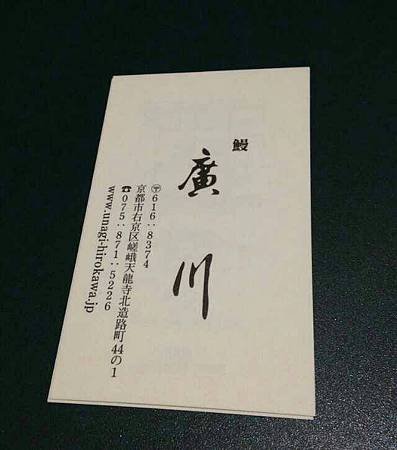 鰻
廣川
〒616‥8374
京都市右京区嵯峨天龍寺北造路町44の1
☎075‥871‥5226
www.unagi-hirokawa.jp